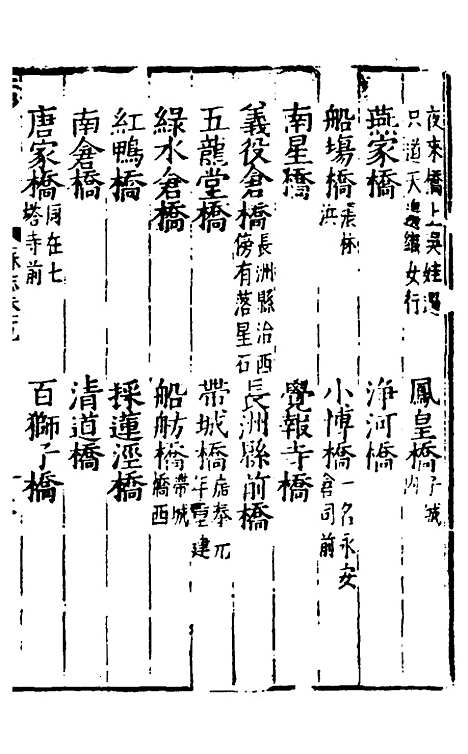 夜來橋上吳娃過
只道天邊織女行　鳳皇橋子城內
燕家橋　淨河橋
船場橋張林浜　小博橋一名永安倉司前
南星橋　覺報寺橋
義役倉橋長洲縣治西傍有落星石　長洲縣前橋
五龍堂橋　帶城橋咸奉元年重建
綠水倉橋　船舫橋帶城橋西
紅鴨橋　採蓮涇橋
南倉橋　清道橋
唐家橋同在七塔寺前　百獅子橋